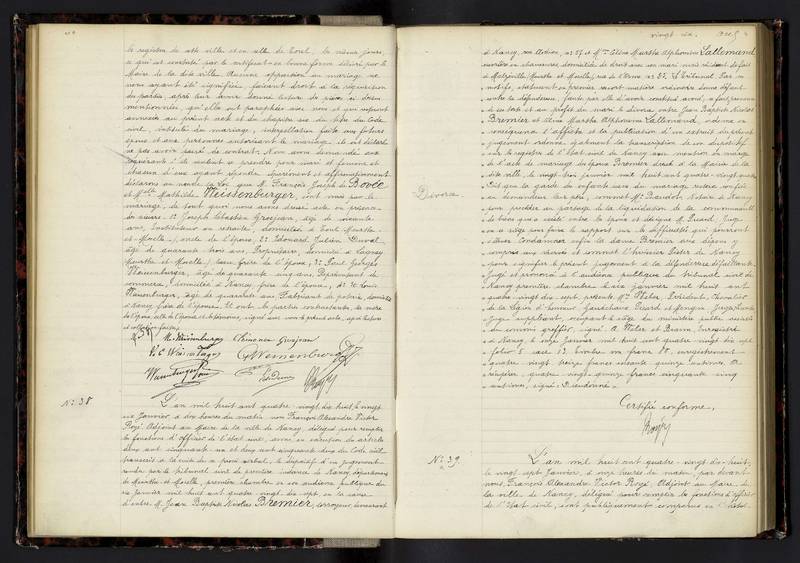 le registre de cette ville et en celle de Toul, les mêmes jours,
ce qui est constaté par le certificat en bonne forme délivré par le
Maire de la dite ville. Aucune opposition au mariage ne
nous ayant été signifiée, faisant droit à la réquisition
des parties, après leur avoir donné lecture des pièces ci dessus
mentionnées, qu'elles ont paraphées avec nous et qui resteront
annexées au présent acte et du chapitre six du titre du Code
civil, intitulé du mariage, interpellation faite aux futurs
époux et aux personnes autorisant le mariage, ils ont déclaré
ne pas avoir passé de contrat. Nous avons demandé aux
requérants s'ils veulent se prendre pour mari et femme et
chacun d'eux ayant répondu séparément et affirmativement
déclarons au nom de la loi que M. François Joseph de Bovée
et Melle Mathilde Weissenburger, sont unis par le
mariage; de tout quoi nous avons dressé acte en présence
des sieurs: 1° Joseph Sébastien Grosjean, âgé de soixante
ans, Instituteur en retraite, domicilié à Toul Meurthe-
et-Moselle, oncle de l'épouse, 2° Edouard Julien Duval
âgé de quarante trois ans, Propriétaire, domicilié à Lagney
Meurthe-et-Moselle, beau frère de l'épouse, 3° Paul Georges
Weissenburger, âgé de quarante cinq ans, Représentant de
commerce, domicilié à Nancy, frère de l'épouse, 4° et Louis
Weissenburger, âgé de quarante ans, Fabricant de poterie, domicilié
à Nancy, frère de l'épouse. Et ont, les parties contractantes, la mère
de l'époux, celle de l'épouse et les témoins, signé avec nous le présent acte, après lecture
et collation faites.
N° 38
L'an mil huit cent quatre vingt dix huit, le vingt
six Janvier, à dix heures du matin nous François Alexandre Victor
Adjoint au Maire de la ville de Nancy, délégué pour remplir
les fonctions d'officier de l'état civil, avons en exécution des articles
deux cent cinquante un et deux cent cinquante deux du Code civil
transcrit à la suite de ce procès verbal, le dispositif d'un jugement
rendu par le tribunal civil de première instance de Nancy, département
de Meurthe et Moselle, première chambre en son audience publique du
six Janvier mil huit cent quatre vingt dix sept en la cause
d'entre M. Jean Baptiste Nicolas Bremier, corroyeur, demeurant
vingt six
à Nancy, rue n° 27 et Mme Elise Marthe Alphonsine Lallemand
ouvrière en chaussures, domiciliée de droit avec son mari mais résidant de fait
à Malzéville (Meurthe et Moselle), rue de l'Orme n° 23. Le Tribunal Par ces
motifs, statuant en premier ressort matière ordinaire donne défaut
contre la défenderesse, faute par elle d'avoir constitué avoué,
prononce à ses torts et au profit du mari le divorce entre Jean Baptiste Nicolas
Bremier et Elise Marthe Alphonsine Lallemand, ordonne en
conséquence l'affiche et la publication d'un extrait du présent
jugement ordonne également la transcription de son dispositif
sur les registres de l'état civil de Nancy avec mention en marge
de l'acte de mariage des époux Bremier dressé à la Mairie de la
dite ville, le vingt trois janvier mil huit cent quatre-vingt-quatre.
Dit que la garde des enfants issus du mariage restera confiée
au demandeur leur père, commet Me Baudot, Notaire à Nancy
pour procéder au partage de la liquidation de la communauté
de biens qui a existé entre les époux et désigne M. Picard, Juge
en ce siège pour faire le rapport sur les difficultés qui pourront
s'élever. Condamne enfin la dame Bremier aux dépens y
compris aux dérivés et commet l'huissier de Nancy
pour signifier le présent jugement à la défenderesse défaillante.
Jugé et prononcé à l'audience publique du tribunal civil de
Nancy première chambre du six janvier mil huit cent
quatre-vingt-dix-sept, présents M. Weber, Président, Chevalier
de la Légion d'honneur, Picard et Mengin, Juges,
Juge suppléant, occupant le siège du ministère public assistés
du commis greffier, signé A. Weber et Braun. Enregistré
à Nancy, le onze Janvier mil huit cent quatre-vingt dix sept
folio 5 case 13. Timbre un franc 80, enregistrement
quatre vingt treize francs soixante quinze centimes. Le
receveur, quatre-vingt-quinze francs cinquante cinq
centimes, signé: Dieudonné.
Certifié conforme,
Divorce
N° 39.
L'an mil huit cent quatre-vingt-dix-huit,
le vingt sept Janvier, à onze heures du matin, par devant
nous, François Alexandre Victor Adjoint au Maire de
la ville de Nancy, délégué pour remplir les fonctions d'officier
de l'état civil, sont publiquement comparus en l'hôtel